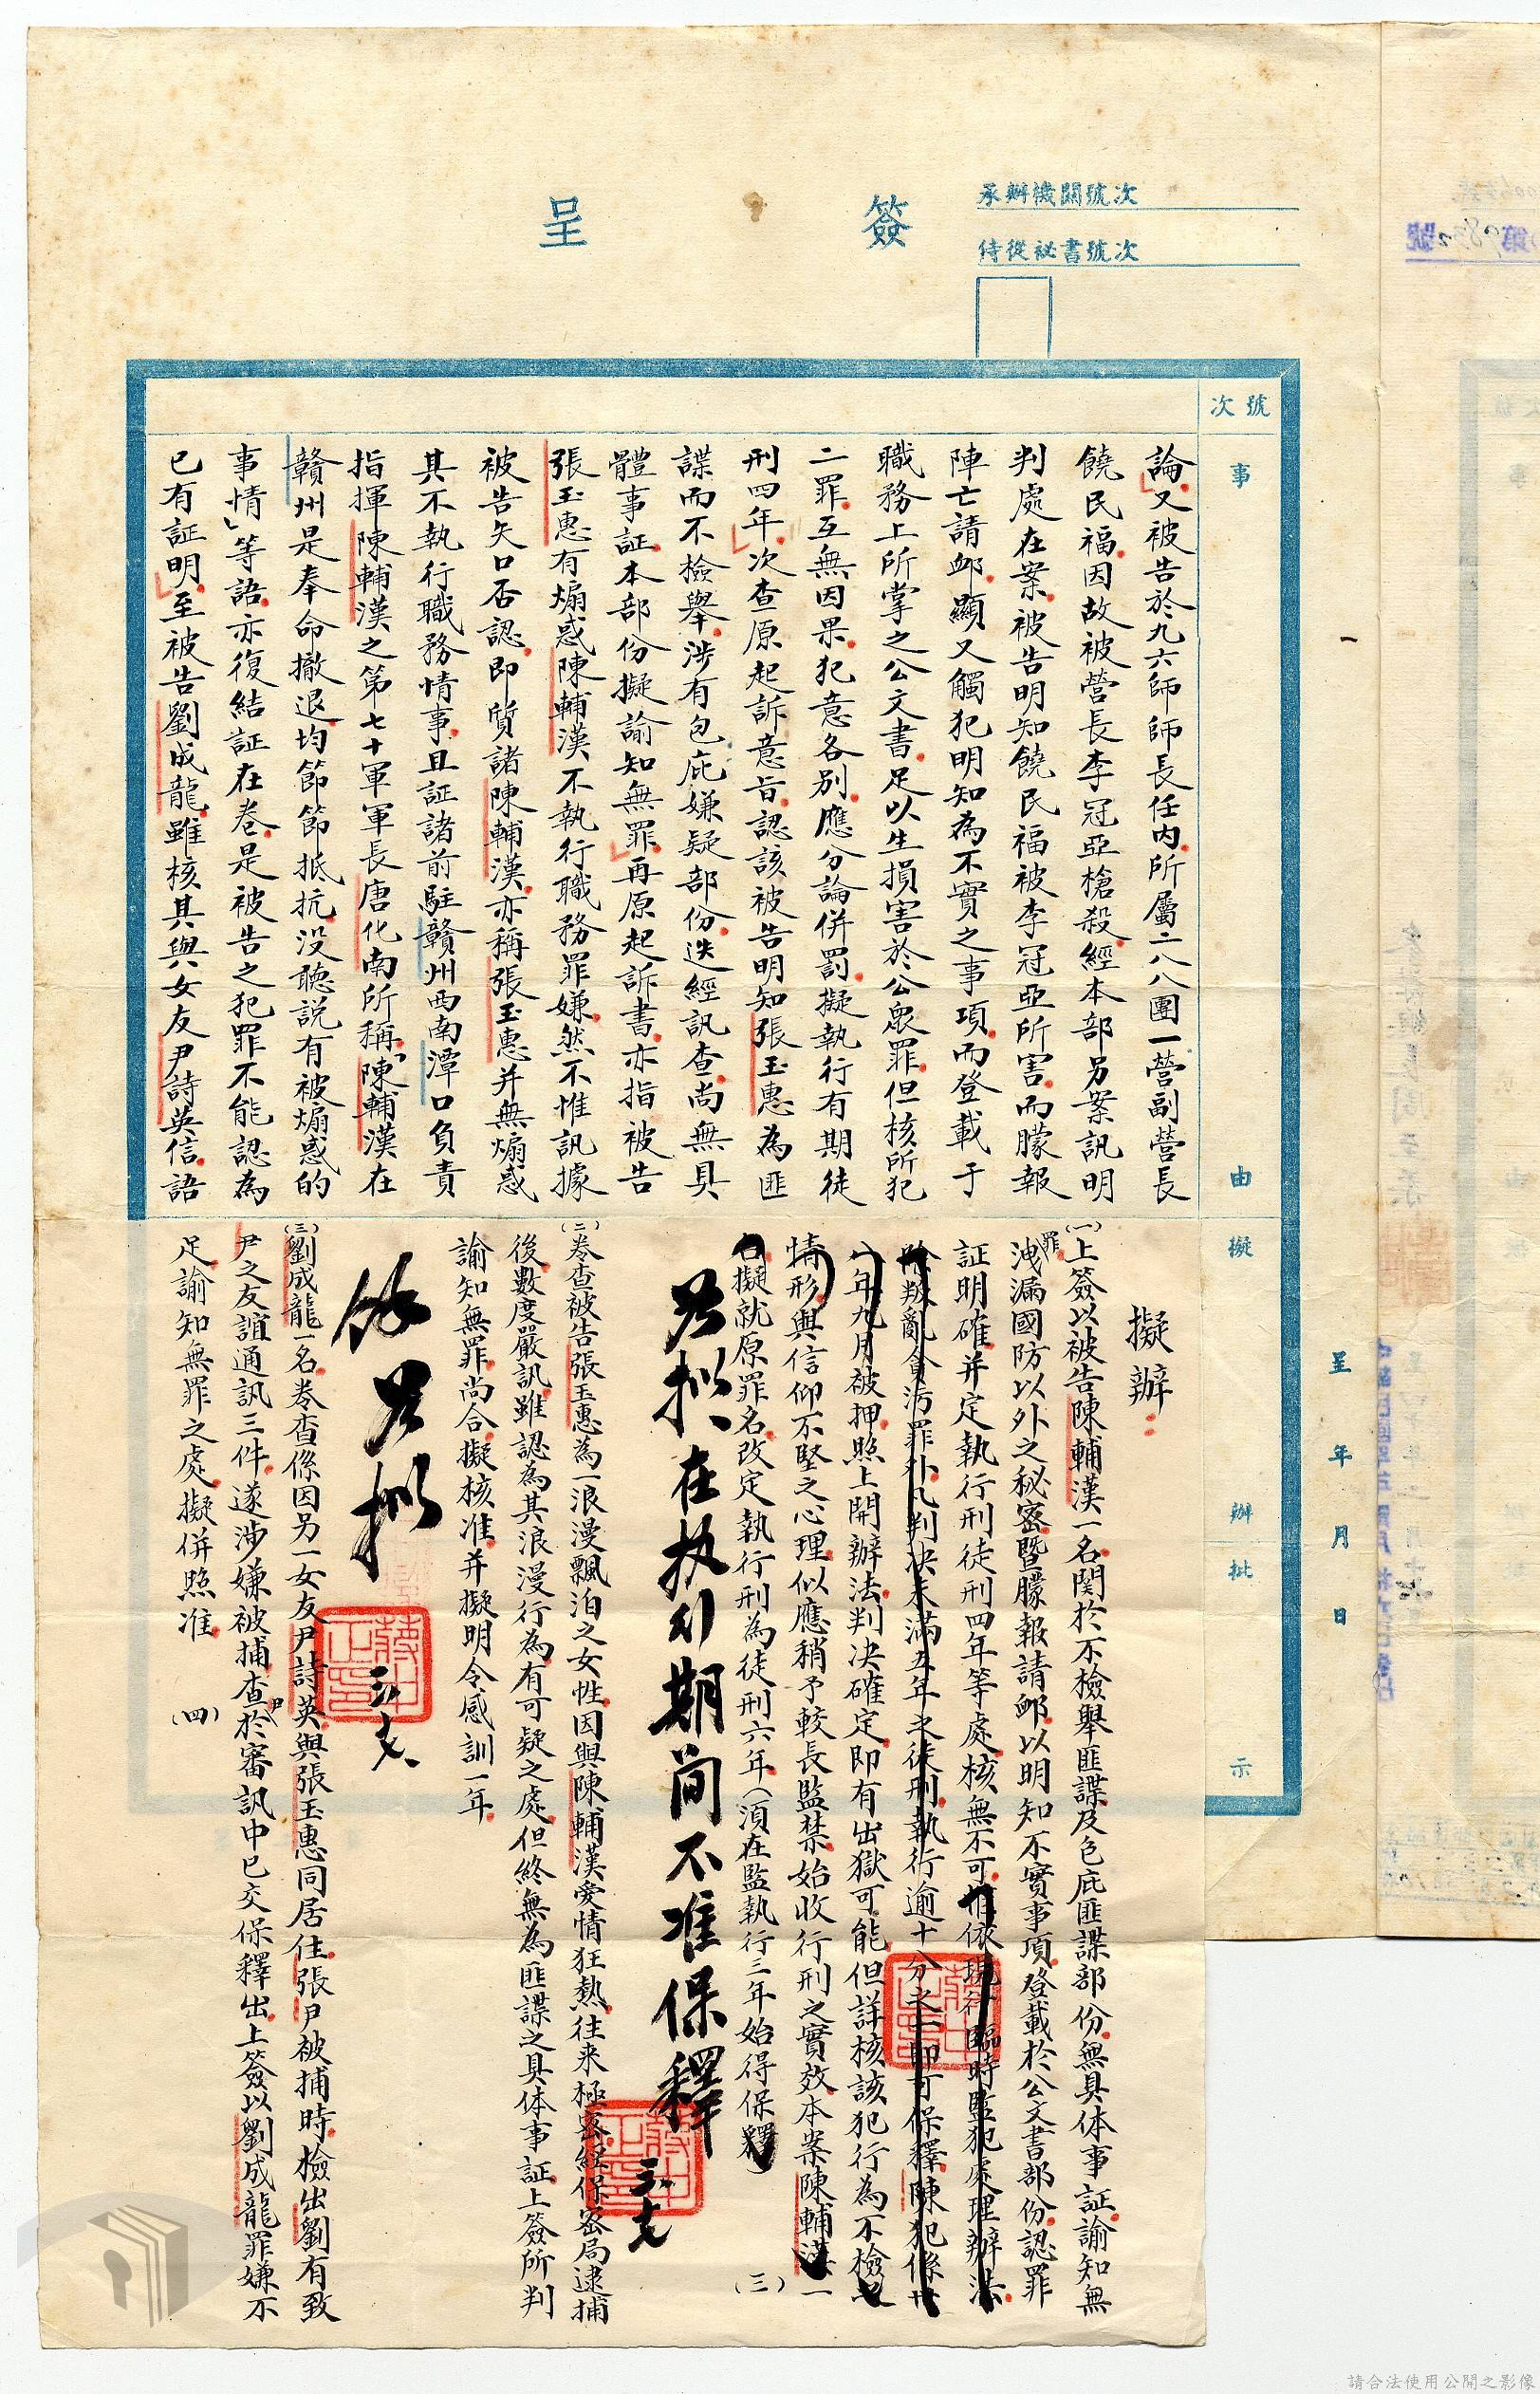 簽呈
承辦機關號次
侍從祕書號次
號次
事由
擬辦
批示
呈 年 月 日
論。又被告於九六師師長任內。所屬二八八團一營副營長
饒民福。因故被營長李冠亞槍殺。經本部另案訊明
判處在案。被告明知饒民福被李冠亞所害。而朦報
陣亡請卹。顯又觸犯明知為不實之事項。而登載于
職務上所掌之公文書。足以生損害於公眾罪。但核所犯
二罪。互無因果。犯意各別。應分論併罰。擬執行有期徒
刑四年。次查原起訴意旨。認該被告明知張玉惠為匪
諜而不檢舉。涉有包庇嫌疑部份。迭經訊查。尚無具
體事証。本部份擬諭知無罪。再原起訴書。亦指被告
張玉惠有煽惑陳輔漢不執行職務罪嫌。然不惟訊據
被告矢口否認。即質諸陳輔漢。亦稱張玉惠并無煽惑
其不執行職務情事。且証諸前駐贛州西南潭口負責
指揮陳輔漢之第七十軍軍長唐化南所稱「陳輔漢在
贛州是奉命撤退。均節節抵抗。沒聽說有被煽惑的
事情」等語。亦復結証在卷。是被告之犯罪不能認為
已有証明。至被告劉成龍。雖核其與女友尹詩英信。語
擬辦：
(一)上簽以被告陳輔漢一名。関於不檢舉匪諜及包庇匪諜部份。無具体事証。諭知無
罪。洩漏國防以外之秘密。暨朦報請卹。以明知不實事項。登載於公文書部份。認罪
証明確。并定執行刑徒刑四年等處。核無不可。惟依現行臨時監犯處理辦法。
除叛亂貪污罪外。凡判決未滿五年之徒刑。執行逾十分之一即可保釋。陳犯係卅
八年九月被押。照上開辦法。判決確定。即有出獄可能。但詳核該犯行為不檢之
情形。與信仰不堅之心理。似應稍予較長監禁。始收行刑之實效。本案陳輔漢一
名。擬就原罪名。改定執行刑為徒刑六年。（須在監執行三年始得保釋）
(三)
如擬 在执行期间不准保釋
三、七
(二)卷查被告張玉惠為一浪漫飄泊之女性。因與陳輔漢愛情狂熱。往來極密。經保密局逮捕
後。數度嚴訊。雖認為其浪漫行為。有可疑之處。但終無為匪諜之具体事証。上簽所判
諭知無罪。尚合。擬核准。并擬明令感訓一年。
如擬
三、七
(三)劉成龍一名。卷查係因另一女友尹詩英。與張玉惠同居住。張尹被捕時。檢出劉有致
尹之友誼通訊三件。遂涉嫌被捕。查尹於審訊中已交保釋出。上簽以劉成龍罪嫌不
足。諭知無罪之處。擬併照准。
(四)
請合法使用公開之影像